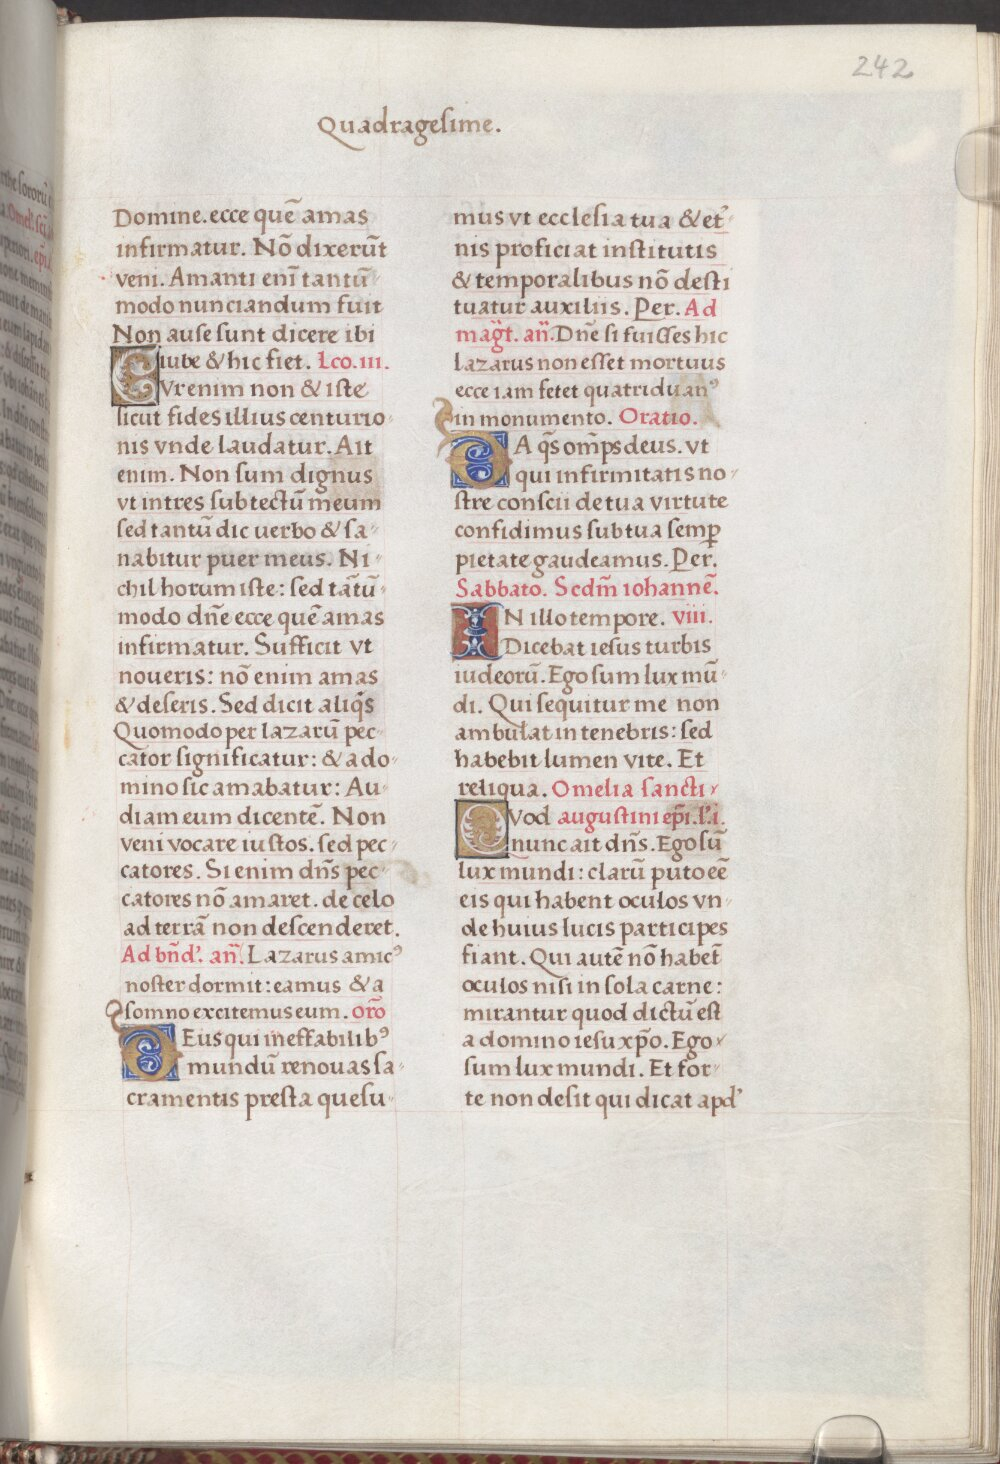 242
Quadragesime.
Domine. ecce quē amas
infirmatur. Nō dixerūt
veni. Amanti enī tantū
modo nunciandum fuit
Non ause sunt dicere ibi
iube & hic fiet. Lco. iii.
CVr enim non & iste
sicut fides illius centurio
nis vnde laudatur. Ait
enim. Non sum dignus
vt intres sub tectū meum
sed tantū dic verbo & sa
nabitur puer meus. Ni
chil horum iste: sed tātū
modo dn̄e ecce quē amas
infirmatur. Sufficit vt
noueris: nō enim amas
& deseris. Sed dicit aliq̄s
Quomodo per lazarū pec
cator significatur: & a do
mino sic amabatur: Au
diam eum dicentē. Non
veni vocare iustos. sed pec
catores. Si enim dn̄s pec
catores nō amaret. de celo
ad terrā non descenderet.
Ad bn̄d'. an̄. Lazarus amicꝰ
noster dormit: eamus & a
somno excitemus eum. orō
DEus qui ineffabilibꝰ
mundū renouas sa
cramentis presta quesu
mus vt ecclesia tua & et̾
nis proficiat institutis
& temporalibus nō desti
tuatur auxiliis. Per. Ad
mag̅t. an̄. Dn̄e si fuisses hic
lazarus non esset mortuus
ecce iam fetet quatriduanꝰ
in monumento. Oratio.
DA q̄s om̄ps deus. vt
qui infirmitatis no
stre conscii de tua virtute
confidimus sub tua semꝑ
pietate gaudeamus. Per.
Sabbato. Scdm̄ iohannē.
IN illo tempore. viii.
Dicebat iesus turbis
iudeorū. Ego sum lux mū
di. Qui sequitur me non
ambulat in tenebris: sed
habebit lumen vite. Et
reliqua. Omelia sancti
QVod augustini ep̄i. l'. i.
nunc ait dn̄s. Ego sū
lux mundi: clarū puto eē
eis qui habent oculos vn
de huius lucis participes
fiant. Qui autē nō habēt
oculos nisi in sola carne:
mirantur quod dictū est
a domino iesu xp̄o. Ego
sum lux mundi. Et for
te non desit qui dicat apd'